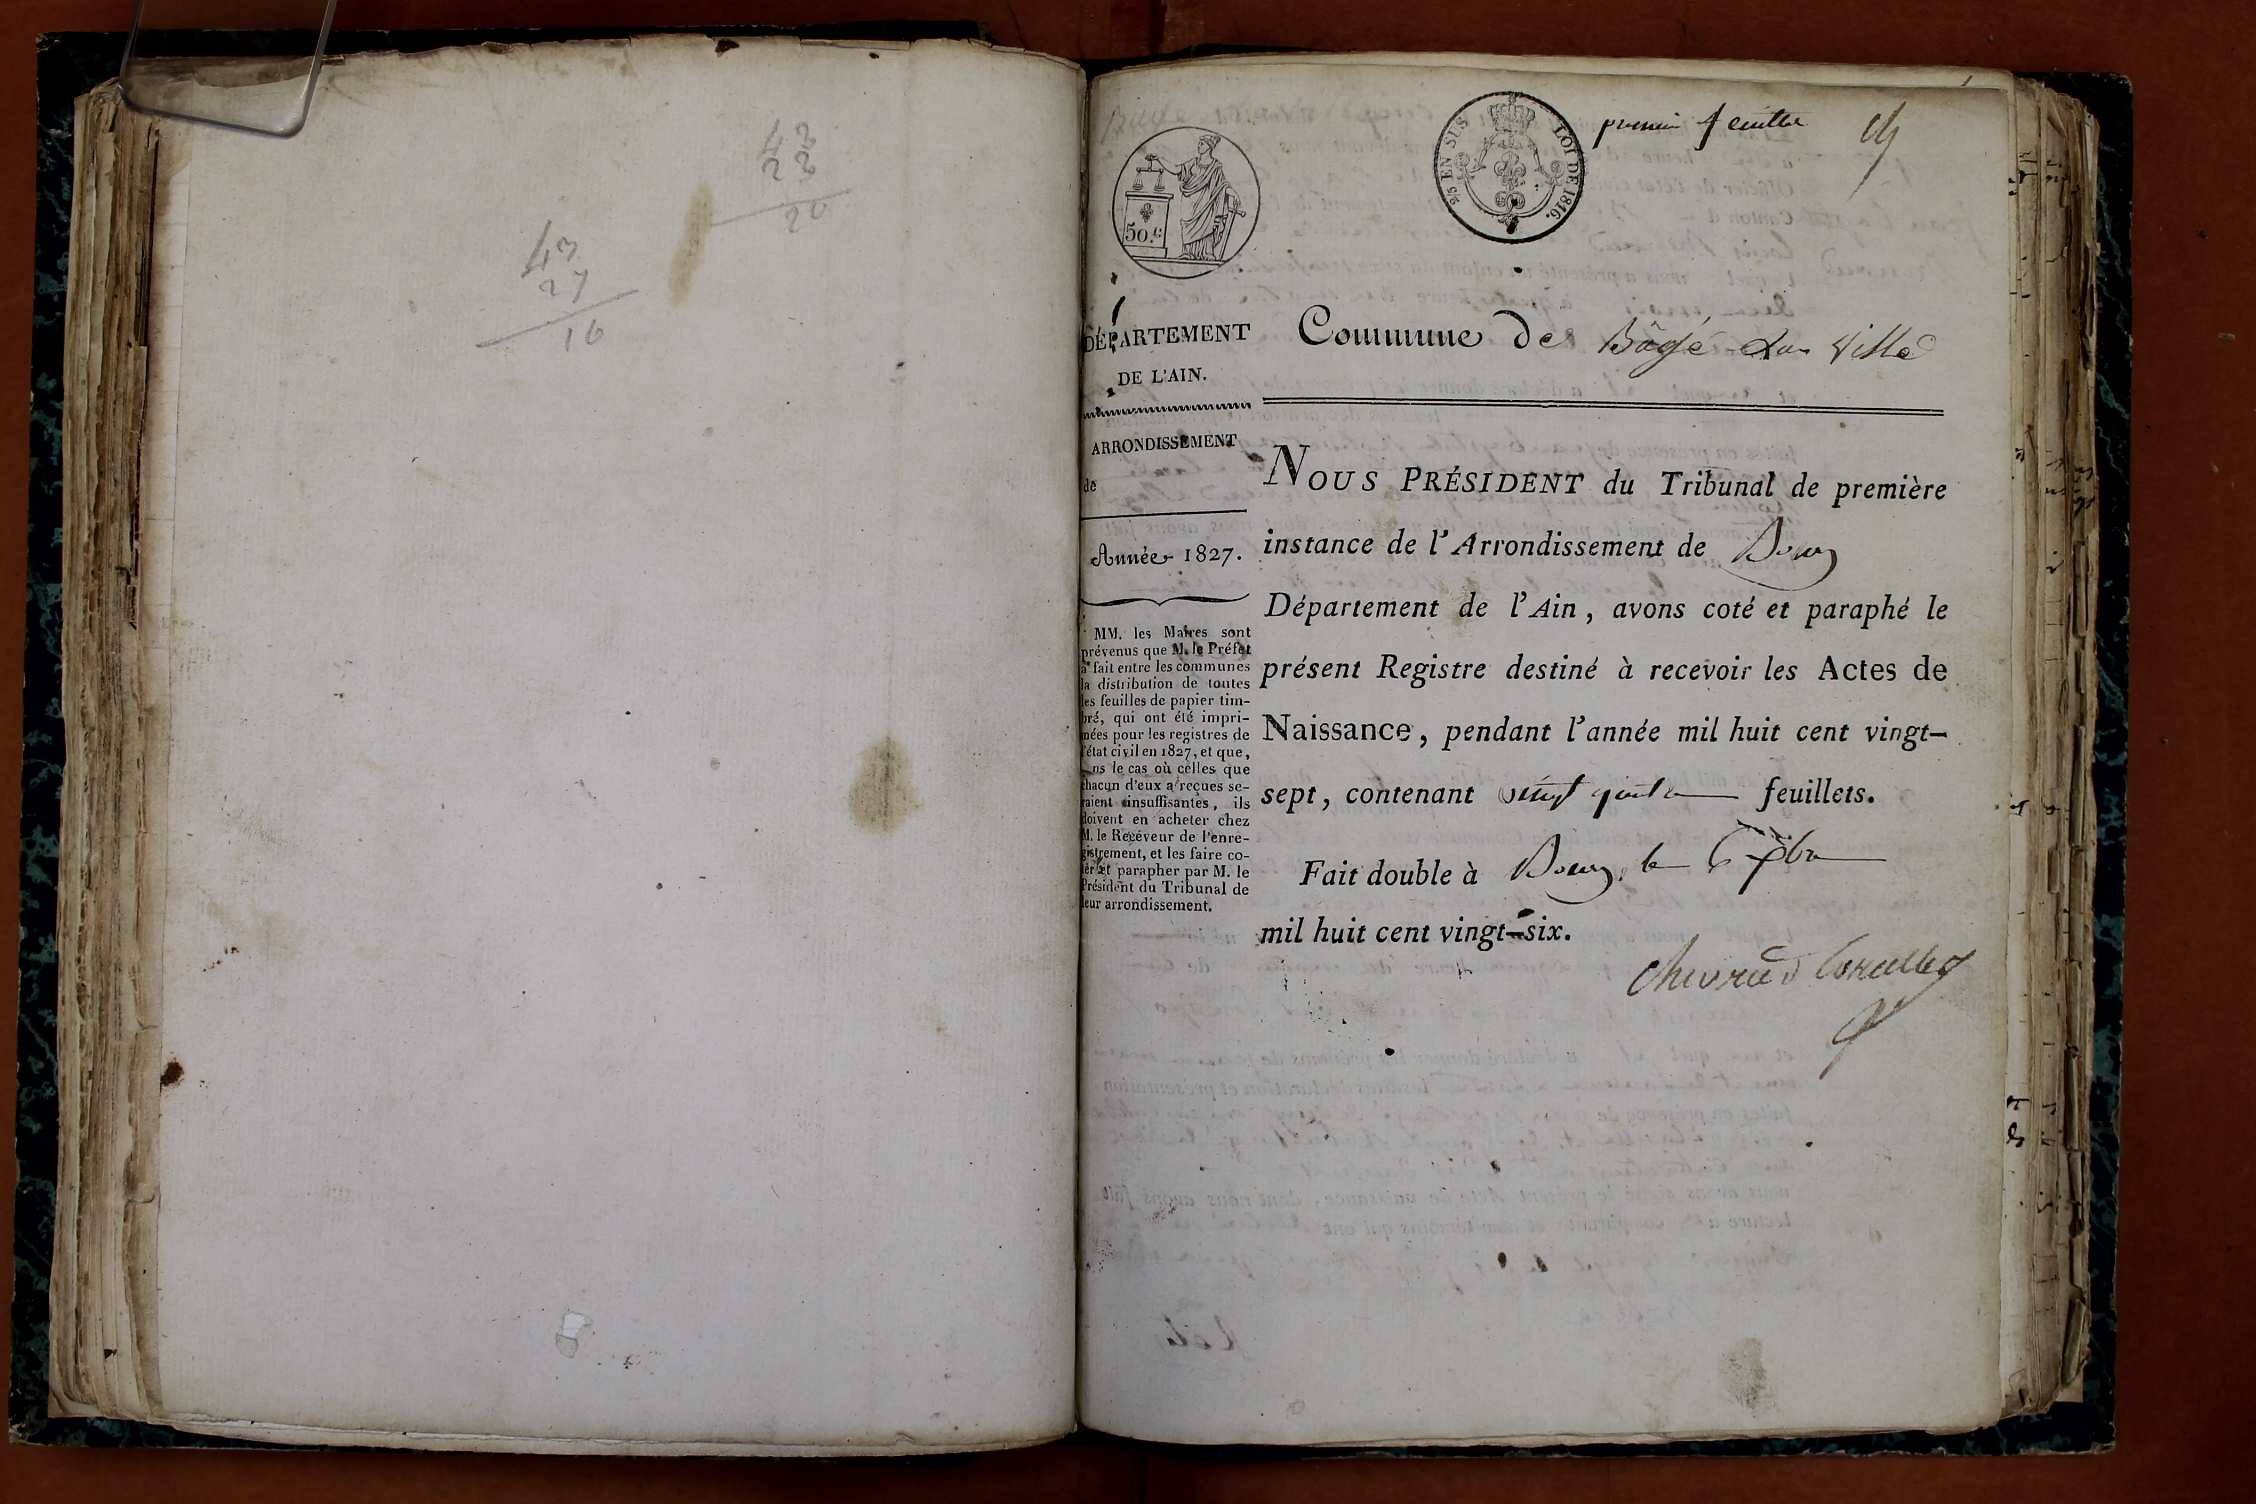 43
23
20
43
27
16
50.c
2/5 EN SUS LOI DE 1816.
premier feuillet
DÉPARTEMENT
DE L'AIN.
ARRONDISSEMENT
de
Année 1827.
MM. les Maires sont
prévenus que M. le Préfet
a fait entre les communes
la distribution de toutes
les feuilles de papier tim-
bré, qui ont été impri-
mées pour les registres de
l'état civil en 1827, et que,
dans le cas où celles que
chacun d'eux a reçues se-
raient insuffisantes, ils
doivent en acheter chez
M. le Recéveur de l'enre-
gistrement, et les faire co-
ter et parapher par M. le
Président du Tribunal de
leur arrondissement.
Commune de Bâgé La Ville
NOUS PRÉSIDENT du Tribunal de première
instance de l'Arrondissement de Bourg
Département de l'Ain, avons coté et paraphé le
présent Registre destiné à recevoir les Actes de
Naissance, pendant l'année mil huit cent vingt-
sept, contenant vingt quatre feuillets.
Fait double à Bourg, le 6 Xbre
mil huit cent vingt-six.